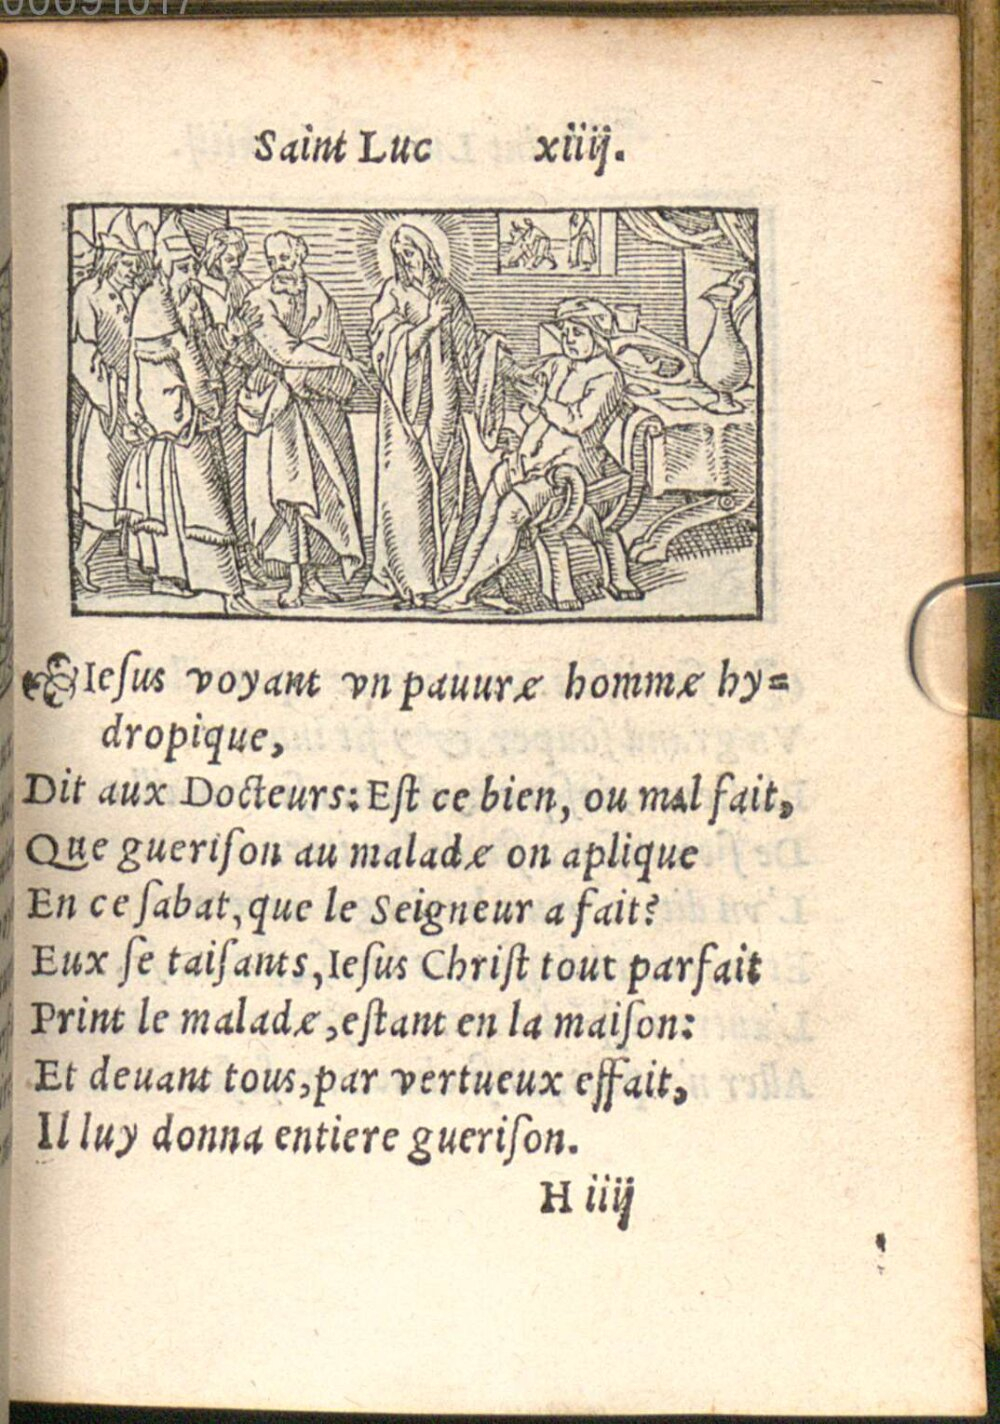 00091017
Saint Luc xiiij.
Ieſus voyant vn pauure homme hy=
dropique,
Dit aux Docteurs: Eſt ce bien, ou mal fait,
Que gueriſon au malade on aplique
En ce ſabat, que le Seigneur a fait?
Eux ſe taiſants, Ieſus Chriſt tout parfait
Print le malade, eſtant en la maiſon:
Et deuant tous, par vertueux effait,
Il luy donna entiere gueriſon.
H iiij